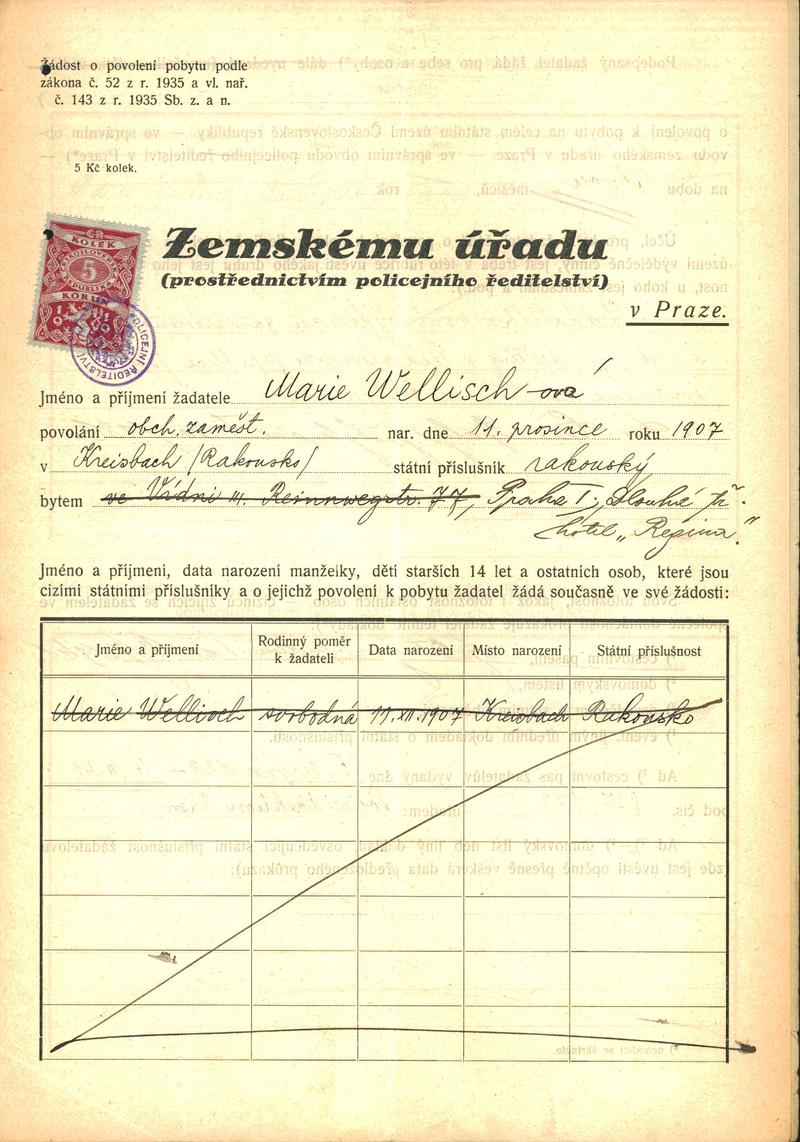 Žádost o povolení pobytu podle
zákona č. 52 z r. 1935 a vl. nař.
č. 143 z r. 1935 Sb. z. a n.
5 Kč kolek.
KOLEK
5
KORUN
POLICEJNÍ ŘEDITELSTVÍ
Zemskému úřadu
(prostřednictvím policejního ředitelství)
v Praze.
Jméno a příjmení žadatele Marie Wellisch-ová
povolání obch. zaměst. nar. dne 11. prosince roku 1907
v Kreisbach /Rakousko/ státní příslušník rakouský
bytem ve Vídni III. Reinnwegstr. 77, Praha I., Dlouhá tř.
hotel „Regina"
Jméno a příjmení, data narození manželky, dětí starších 14 let a ostatních osob, které jsou
cizími státními příslušníky a o jejichž povolení k pobytu žadatel žádá současně ve své žádosti:
Jméno a příjmení Rodinný poměr k žadateli Data narození Místo narození Státní příslušnost
Marie Wellisch svobodná 11.XII.1907 Kreisbach Rakousko